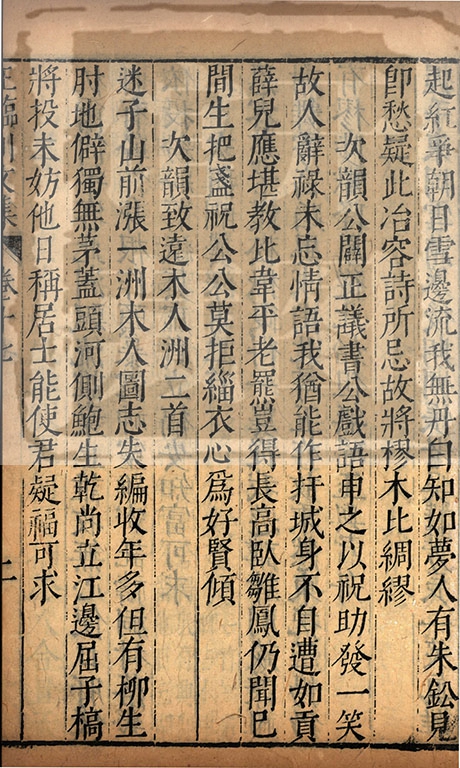 起紅爭朝日雪邊流我無丹白知如夢人有朱鈆見
卽愁疑此冶容詩所忌故將樛木比綢繆
次韻公闢正議書公戲語申之以祝助發一笑
故人辭祿未忘情語我猶能作扞城身不自遭如貢
薛兒應堪教比韋平老羆豈得長高臥雛鳳仍聞已
間生把盞祝公公莫拒緇衣心爲好賢傾
次韻致遠木人洲二首
迷子山前漲一洲木人圖志失編收年多但有柳生
肘地僻獨無茅蓋頭河側鮑生乾尚立江邊屈子槁
將投未妨他日稱居士能使君疑福可求
王臨川文集 卷十七